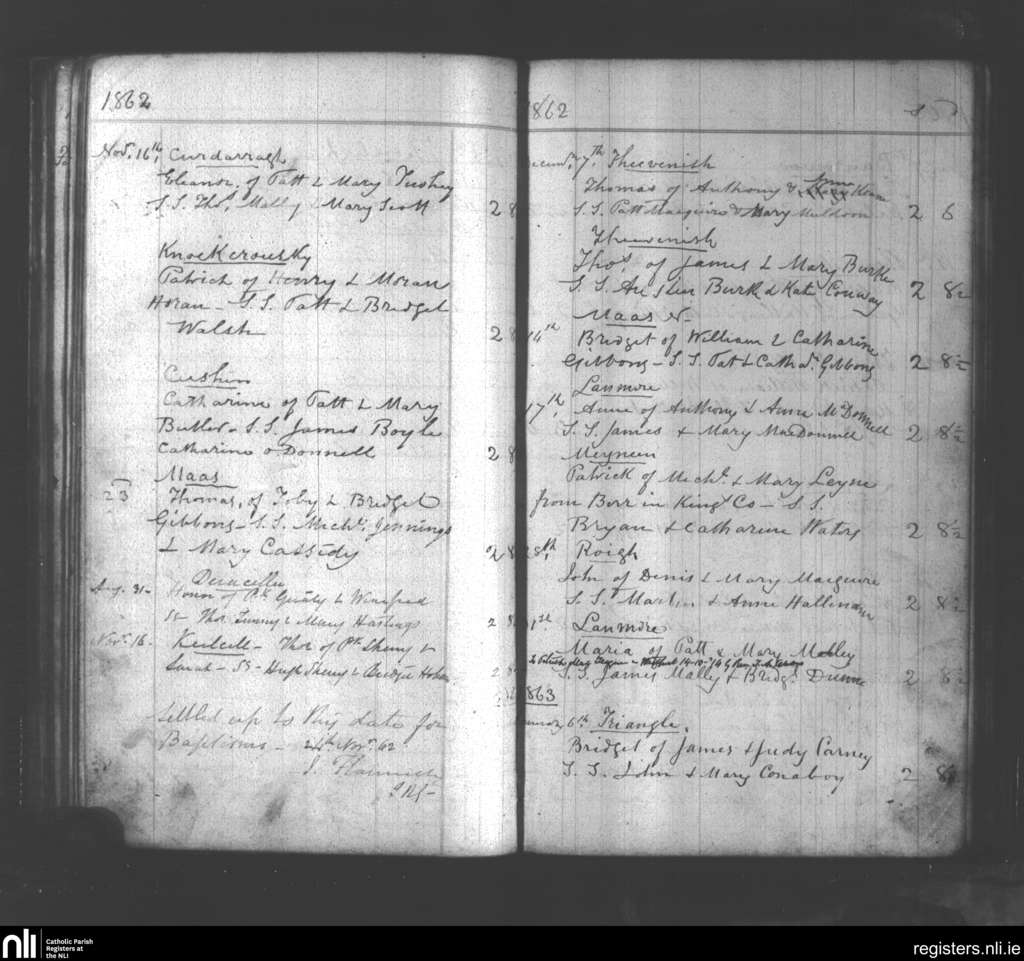 1862
Nov. 16th, Curdarragh
Eleanor, of Patt & Mary
S.S. Thos. Mally & Mary Scott 2 8
Patrick of Henry & Moran
Horan - S.S. Patt & Bridget
Walsh 2 8
Cushin
Catharine of Patt & Mary
Butler - S.S. James Boyle
Catharine o Donnell 2 8
Maas
23 Thomas, of Toby & Bridget
Gibbons - S.S. Michl. Jennings
& Mary Cassidy 2 8
Aug. 31 -
Honor of Pk & Winefred
SS - Thos & Mary Hastings 2 8
Novr. 16. - Thos of Pk &
Sarah - SS - Hugh & Bridget
Settled up to this date for
Baptisms - 24th Novr. 62
1862
7th, Theevenish
Thomas of Anthony & Anne
S.S. Patt Macguire & Mary Muldoon 2 6
Theevenish
Thos. of James & Mary Burke
S.S. Austin Burke & Kate Conway 2 8½
Maas N-
14th Bridget of William & Catharine
Gibbons - S.S. Pat & Cathn. Gibbons 2 8½
Lanmore
17th, Anne of Anthony & Anne McDonnell
S.S. James & Mary MacDonnell 2 8½
Meyneen
Patrick of Michl. & Mary Leyne
from Borr in Kings Co - S.S.
Bryan & Catharine Waters 2 8½
28th, Roigh
John of Denis & Mary Macguire
S.S. Martin & Anne Hallinane 2 8½
31st Lanmore
Maria of Patt & Mary Malley
S.S. James Malley & Bridgt. Dunne 2 8½
1863
6th Triangle.
Bridget of James & Judy Carney
S.S. John & Mary Conaboy 2 8½
nli
Catholic Parish
Registers at
the NLI
registers.nli.ie